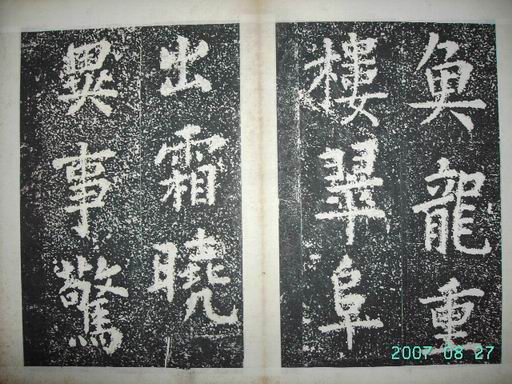 魚龍重
樓翠阜
出霜曉
異事驚
2007 08 27